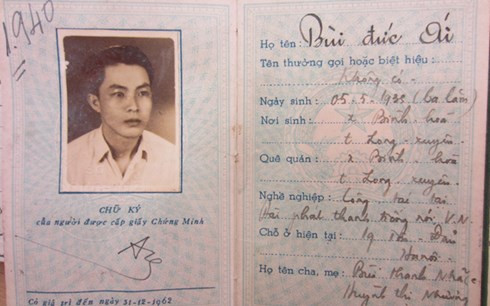 1.940
CHỮ KÝ
của người được cấp giấy Chứng Minh
Có giá trị đến ngày 31-12-1962
Họ tên: Bùi đức Ái
Tên thường gọi hoặc biệt hiệu:
Không có
Ngày sinh: 05-5-1935 (ba lăm)
Nơi sinh: x Bình hoà
t Long xuyên
Quê quán: x Bình hoà
t Long xuyên
Nghề nghiệp: Công tác tại
đài phát thanh tiếng nói V.N
Chỗ ở hiện tại: 19
Hanoi
Họ tên cha, mẹ: Bùi thanh
Huỳnh thị